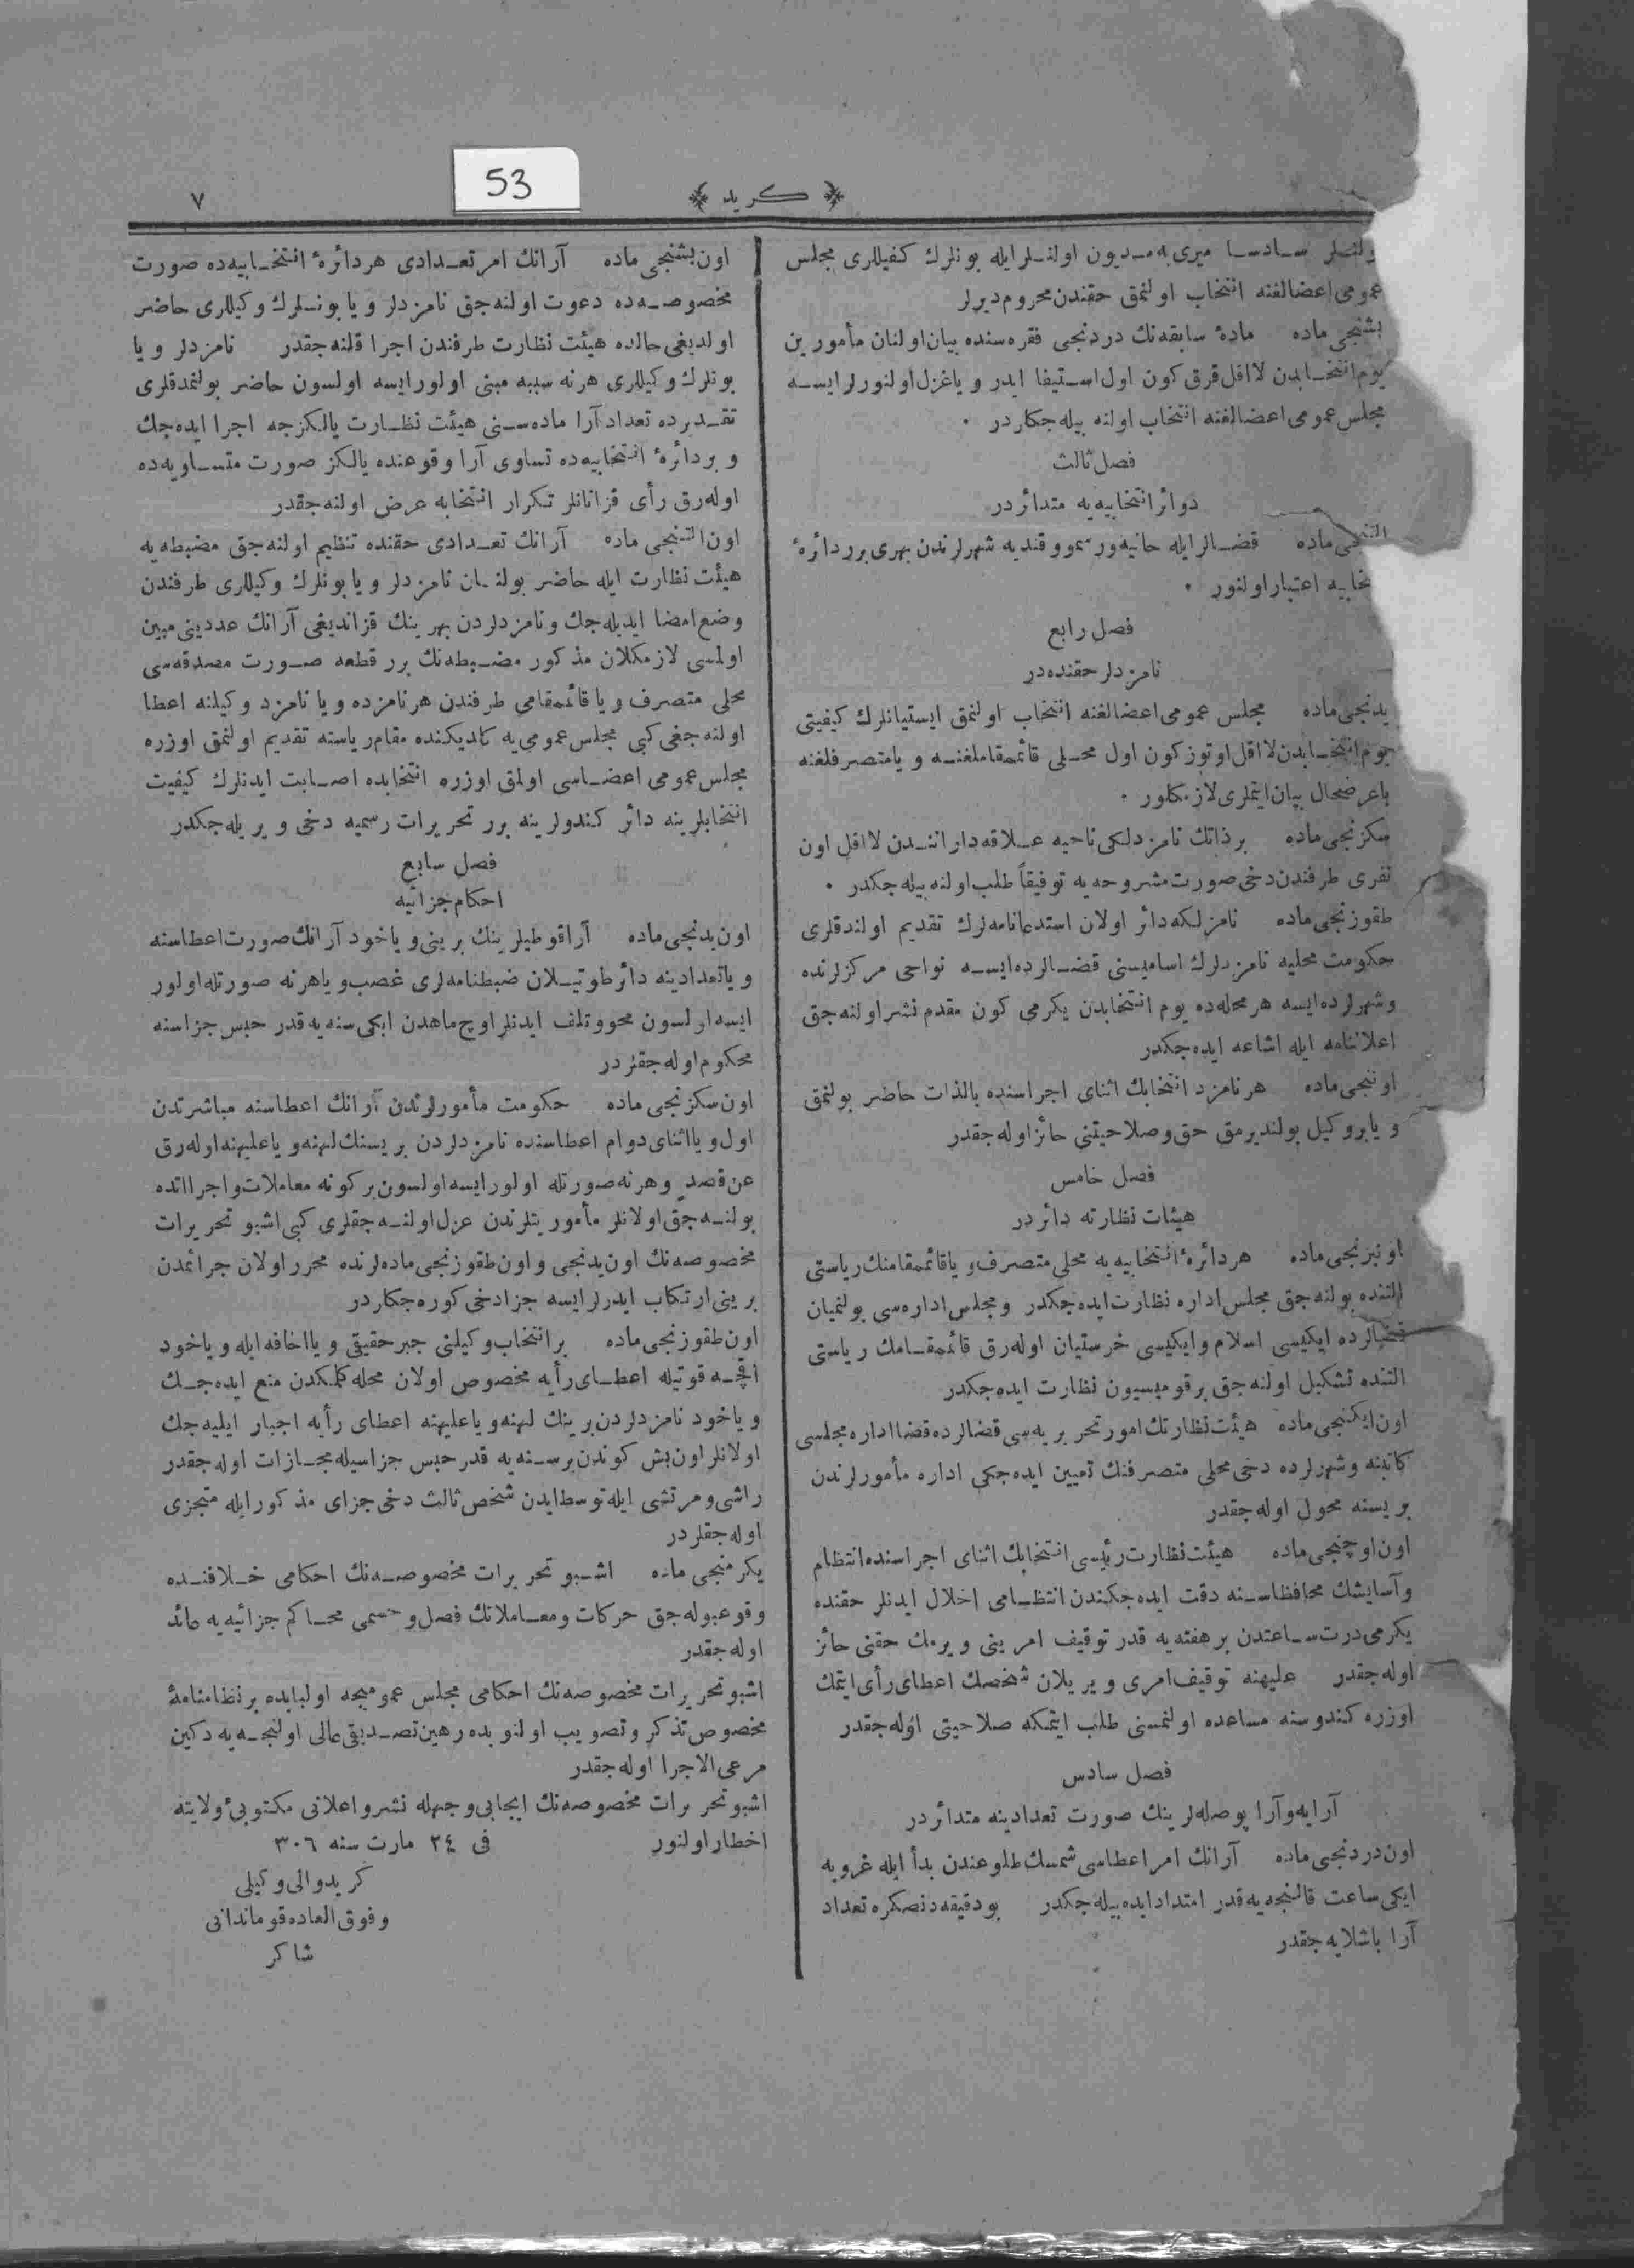 ﴿ كريد ﴾
٧
53
ولنلر سادسا ميرى به مديون اولنلر ايله بونلرك كفيللرى مجلس
عمومى اعضالغنه انتخاب اولنمق حقندن محروم ديرلر
بشنجى ماده مادهٔ سابقه نك دردنجى فقره سنده بيان اولنان مأمورين
يوم انتخابدن لااقل قرق كون اول استيفا ايدر و يا عزل اولنورلر ايسه
مجلس عمومى اعضالغنه انتخاب اولنه بيله جكلر در .
فصل ثالث
دوائر انتخابيه يه متدائر در
التنجى ماده قضالر ايله حانيه و رسمو و قنديه شهرلرندن بهرى برر دائرهٔ
نخابيه اعتبار اولنور .
فصل رابع
نامزدلر حقنده در
يدنجى ماده مجلس عمومى اعضالغنه انتخاب اولنمق ايستيانلرك كيفيتى
يوم انتخابدن لااقل اوتوز كون اول محلى قائممقاملغنه و يا متصرفلغنه
باعرضحال بيان ايتملرى لازمكلور .
سكزنجى ماده بر ذاتك نامزدلكى ناحيه علاقه دارانندن لااقل اون
نفرى طرفندن دخى صورت مشروحه يه توفيقاً طلب اولنه بيله جكدر .
طقوزنجى ماده نامزلكه دائر اولان استدعانامه لرك تقديم اولندقلرى
حكومت محليه نامزدلرك اساميسنى قضالرده ايسه نواحى مركزلرنده
و شهرلرده ايسه هر محله ده يوم انتخابدن يكرمى كون مقدم نشر اولنه جق
اعلاننامه ايله اشاعه ايده جكدر
اوننجى ماده هر نامزد انتخابك اثناى اجراسنده بالذات حاضر بولنمق
و يا بر وكيل بولنديرمق حق و صلاحيتنى حائز اوله جقدر
فصل خامس
هيئات نظارته دائر در
اون برنجى ماده هر دائرهٔ انتخابيه يه محلى متصرف و يا قائممقامنك رياستى
التنده بولنه جق مجلس اداره نظارت ايده جكدر و مجلس اداره سى بولنميان
قضالرده ايكيسى اسلام و ايكيسى خرستيان اوله رق قائممقامك رياستى
التنده تشكيل اولنه جق بر قوميسيون نظارت ايده جكدر
اون ايكنجى ماده هيئت نظارتك امور تحريريه سى قضالرده قضا اداره مجلسى
كاتبنه و شهرلرده دخى محلى متصرفنك تعيين ايده جكى اداره مأمورلرندن
بريسنه محول اوله جقدر
اون اوچنجى ماده هيئت نظارت رئيسى انتخابك اثناى اجراسنده انتظام
و آسايشك محافظاسنه دقت ايده جكندن انتظامى اخلال ايدنلر حقنده
يكرمى درت ساعتدن بر هفته يه قدر توقيف امرينى ويرمك حقنى حائز
اوله جقدر عليهنه توقيف امرى ويريلان شخصك اعطاى رأى ايتمك
اوزره كندوسنه مساعده اولنمسنى طلب ايتمكه صلاحيتى اوله جقدر
فصل سادس
آرايه و آرا پوصله لرينك صورت تعدادينه متدائر در
اون دردنجى ماده آرانك امر اعطاسى شمسك طلوعندن بدأ ايله غروبه
ايكى ساعت قالنجه يه قدر امتداد ايده بيله جكدر بو دقيقه دنصكره تعداد
آرا باشلايه جقدر
اون بشنجى ماده آرانك امر تعدادى هر دائرهٔ انتخابيه ده صورت
مخصوصه ده دعوت اولنه جق نامزدلر و يا بونلرك وكيللرى حاضر
اولديغى حالده هيئت نظارت طرفندن اجرا قلنه جقدر نامزدلر و يا
بونلرك وكيللرى هر نه سببه مبنى اولور ايسه اولسون حاضر بولنمدقلرى
تقديرده تعداد آرا ماده سنى هيئت نظارت يالكزجه اجرا ايده جك
و بر دائرهٔ انتخابيه ده تساوى آرا وقوعنده يالكز صورت متساويه ده
اوله رق رأى قزانانلر تكرار انتخابه عرض اولنه جقدر
اون التنجى ماده آرانك تعدادى حقنده تنظيم اولنه جق مضبطه يه
هيئت نظارت ايله حاضر بولنان نامزدلر و يا بونلرك وكيللرى طرفندن
وضع امضا ايديله جك و نامزدلردن بهرينك قزانديغى آرانك عددينى مبين
اولمسى لازمكلان مذكور مضبطه نك برر قطعه صورت مصدقه سى
محلى متصرف و يا قائممقامى طرفندن هر نامزده و يا نامزد وكيلنه اعطا
اولنه جغى كبى مجلس عمومى يه كلديكنده مقام رياسته تقديم اولنمق اوزره
مجلس عمومى اعضاسى اولمق اوزره انتخابده اصابت ايدنلرك كيفيت
انتخابلرينه دائر كندولرينه برر تحريرات رسميه دخى ويريله جكدر
فصل سابع
احكام جزائيه
اون يدنجى ماده آرا قوطيلرينك برينى و ياخود آرانك صورت اعطاسنه
و يا تعدادينه دائر طوتيلان ضبطنامه لرى غصب و يا هر نه صورتله اولور
ايسه اولسون محو و تلف ايدنلر اوچ ماهدن ايكى سنه يه قدر حبس جزاسنه
محكوم اوله جقلر در
اون سكزنجى ماده حكومت مأمورلرندن آرانك اعطاسنه مباشرتدن
اول و يا اثناى دوام اعطاسنده نامزدلردن بريسنك لهنه و يا عليهنه اوله رق
عن قصدٍ و هر نه صورتله اولور ايسه اولسون بر كونه معاملات و اجرااتده
بولنه جق اولانلر مأموريتلرندن عزل اولنه جقلرى كبى اشبو تحريرات
مخصوصه نك اون يدنجى و اون طقوزنجى ماده لرنده محرر اولان جرائمدن
برينى ارتكاب ايدرلر ايسه جزا دخى كوره جكلر در
اون طقوزنجى ماده بر انتخاب وكيلنى جبر حقيقى و يا اخافه ايله و ياخود
اقچه قوتيله اعطاى رأيه مخصوص اولان محله كلمكدن منع ايده جك
و ياخود نامزدلردن برينك لهنه و يا عليهنه اعطاى رأيه اجبار ايليه جك
اولانلر اون بش كوندن بر سنه يه قدر حبس جزاسيله مجازات اوله جقدر
راشى و مرتشى ايله توسط ايدن شخص ثالث دخى جزاى مذكور ايله متجزى
اوله جقلر در
يكرمنجى ماده اشبو تحريرات مخصوصه نك احكامى خلافنده
وقوعبوله جق حركات و معاملاتك فصل و حسمى محاكم جزائيه يه عائد
اوله جقدر
اشبو تحريرات مخصوصه نك احكامى مجلس عموميجه اولبابده بر نظامنامهٔ
مخصوص تذكر و تصويب اولنوبده رهين تصديق عالى اولنجه يه دكين
مرعى الاجرا اوله جقدر
اشبو تحريرات مخصوصه نك ايجابى وجهله نشر و اعلانى مكتوبىٔ ولايته
اخطار اولنور فى ٢٤ مارت سنه ٣٠٦
كريد والى وكيلى
و فوق العاده قوماندانى
شاكر